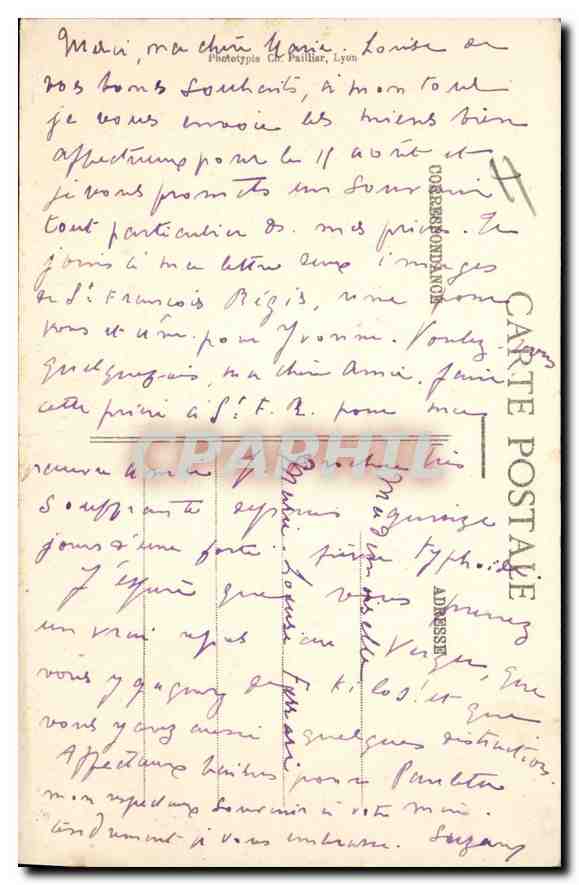 Merci, ma chère Marie-Louise de
Phototypie Ch. Pailliar, Lyon
vos bons souhaits, à mon tour
je vous envoie les miens bien
affectueux pour le 15 août et
je vous promets un souvenir
tout particulier ds. mes prières. Je
joins à ma lettre deux images
de St François Régis, une pour
vous et une pour Yvonne. Voulez-vous
quelquefois, ma chère amie, faire
cette prière à St. F. R. pour ma
pauvre très
souffrante depuis quinze
jours d'une forte fièvre typhoïde
J'espère que vous prenez
un vrai repos au Verger, que
vous y gagnez des kilos! et que
vous y avez aussi quelques distractions.
Affectueux baisers pour Paulette
mon respectueux souvenir à votre mère.
tendrement je vous embrasse. Suzanne
CARTE POSTALE
CORRESPONDANCE
ADRESSE
Mademoiselle
Marie-Louise Ferrari
CPAPHIL